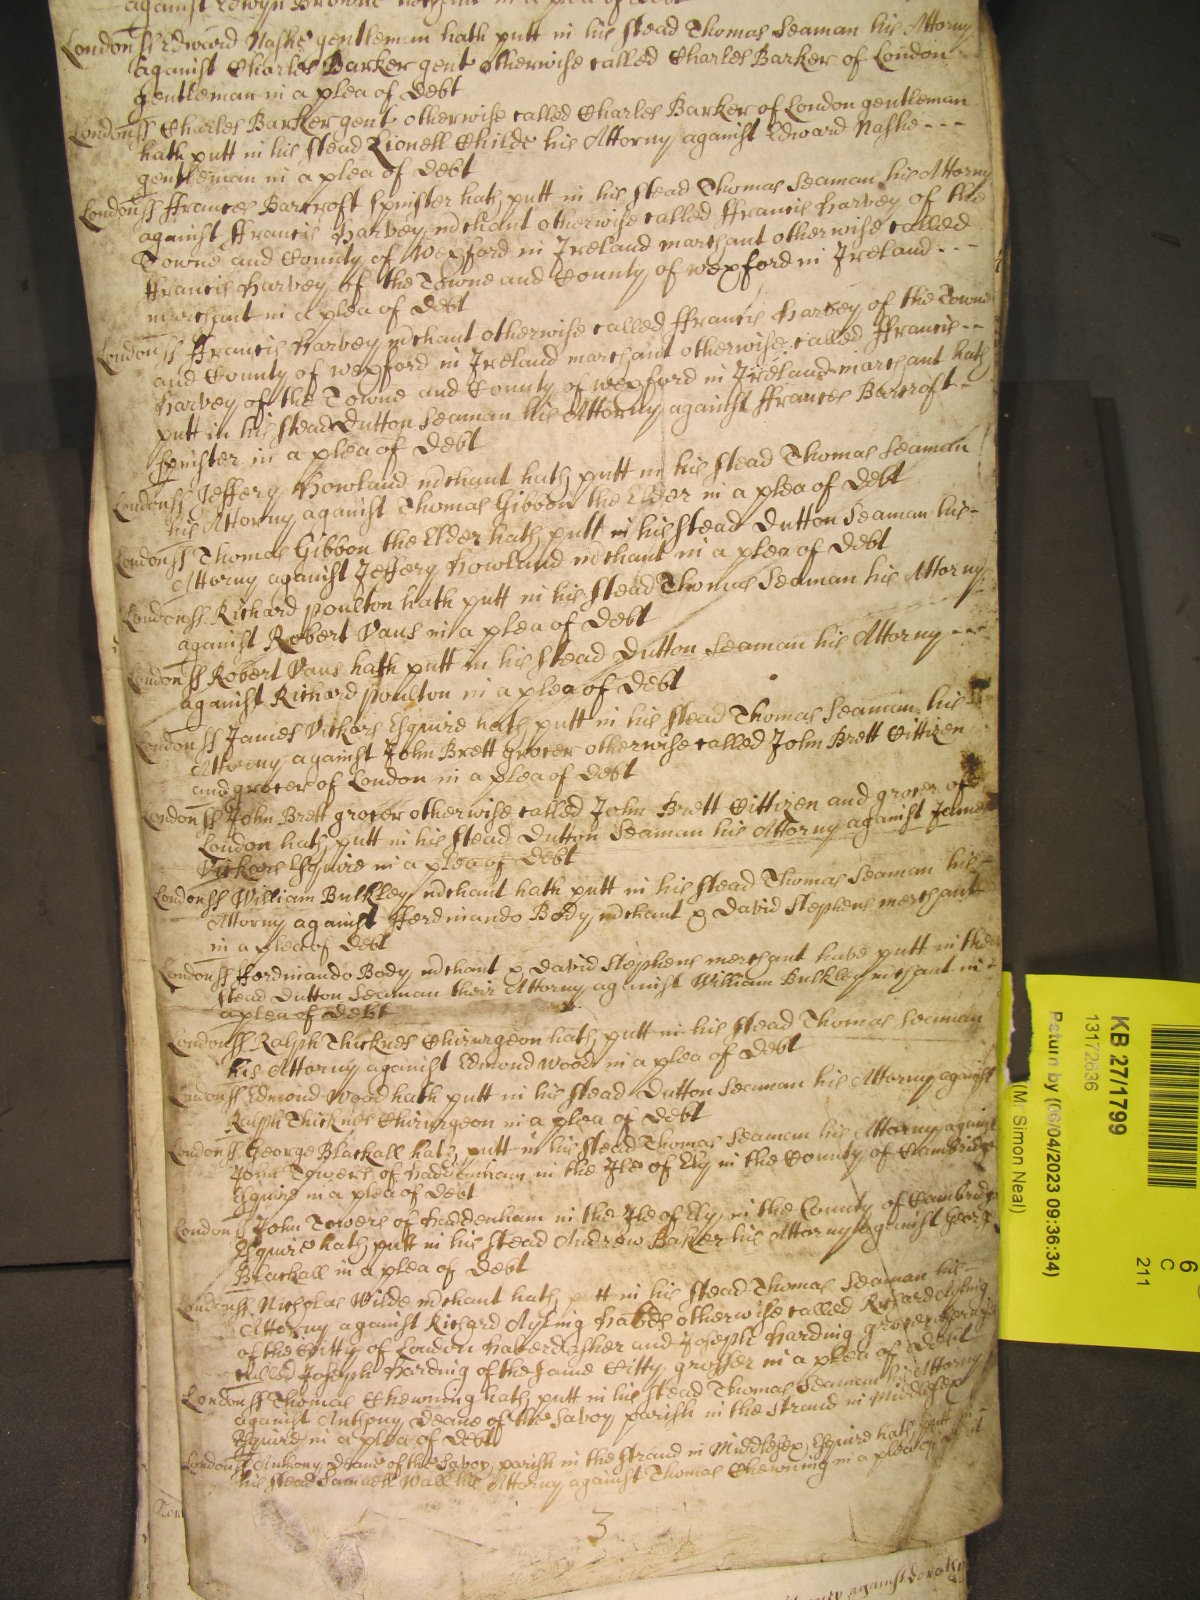 against Edwyn Browne in a plea of Debt
London ss Edward Nashe gentleman hath putt in his stead Thomas Seaman his Attorny
against Charles Barker gent otherwise called Charles Barker of London
gentleman in a plea of Debt
London ss Charles Barker gent otherwise called Charles Barker of London gentleman
hath putt in his stead Lionell Childe his Attorny against Edward Nashe - - -
gentleman in a plea of Debt
London ss ffrances Barcroft spinster hath putt in his stead Thomas Seaman his Attorny
against ffrancis Harvey m'chant otherwise called ffrancis Harvey of the
Towne and County of Wexford in Ireland marchant otherwise called
ffrancis Harvey of the Towne and County of wexford in Ireland - - -
marchant in a plea of Debt
London ss ffrancis Harvey m'chant otherwise called ffrancis Harvey of the Towne
and County of wexford in Ireland marchant otherwise called ffrancis - -
Harvey of the Towne and County of wexford in Ireland marchant hath
putt in his stead Dutton Seaman his Attorny against ffrances Barcroft -
spinster in a plea of Debt
London ss Jeffery Howland m'chant hath putt in his stead Thomas Seaman
his Attorny against Thomas Gibbon the Elder in a plea of Debt
London ss Thomas Gibbon the Elder hath putt in his stead Dutton Seaman his -
Attorny against Jeffery Howland m'chant in a plea of Debt
London ss Richard Poulton hath putt in his stead Thomas Seaman his Attorny
against Robert Vaus in a plea of Debt
London ss Robert Vaus hath putt in his stead Dutton Seaman his Attorny - - -
against Richard Poulton in a plea of Debt
London ss James Vickars Esquire hath putt in his stead Thomas Seaman his
Attorny against John Brett grocer otherwise called John Brett Cittizen
and grocer of London in a plea of Debt
London ss John Brett grocer otherwise called John Brett Cittizen and grocer of
London hath putt in his stead Dutton Seaman his Attorny against James
Vickars Esquire in a plea of Debt
London ss William Bulkley m'chant hath putt in his stead Thomas Seaman his
Attorny against fferdinando Body m'chant & David Stephens merchant
in a plea of Debt
London ss fferdinando Body m'chant & David Stephens merchant have putt in their
stead Dutton Seaman their Attorny against William Bulkley m'chant in
a plea of Debt
London ss Ralph Thicknes Chirurgeon hath putt in his stead Thomas Seaman
his Attorny against Edmond Wood in a plea of Debt
London ss Edmond Wood hath putt in his stead Dutton Seaman his Attorny against
Ralph Thicknes Chirurgeon in a plea of Debt
London ss George Blackall hath putt in his stead Thomas Seaman his Attorny against
John Towers of Haddenham in the Ile of Ely in the County of Cambridge
Esquire in a plea of Debt
London ss John Towers of Haddenham in the Ile of Ely in the County of Cambridge
Esquire hath putt in his stead Andrew Baker his Attorny against George
Blackall in a plea of Debt
London ss Nicholas Wilde m'chant hath putt in his stead Thomas Seaman his
Attorny against Richard Ayling otherwise called Richard Ayling
of the Citty of London Haberdasher and Joseph Harding grocer
called Joseph Harding of the same Citty grosser in a plea of Debt
London ss Thomas Chewning hath putt in his stead Thomas Seaman his Attorny
against Anthony Deane of the Savoy parish in the Strand in Middlesex
Esquire in a plea of Debt
London ss Anthony Deane of the Savoy parish in the Strand in Middlesex Esquire hath putt in
his stead Samuell Wall his Attorny against Thomas Chewning in a plea of Debt
Lon
3
against
KB 27/1799
13172636
Return by (06/04/2023 09:36:34)
(Mr Simon Neal)
6
C
211